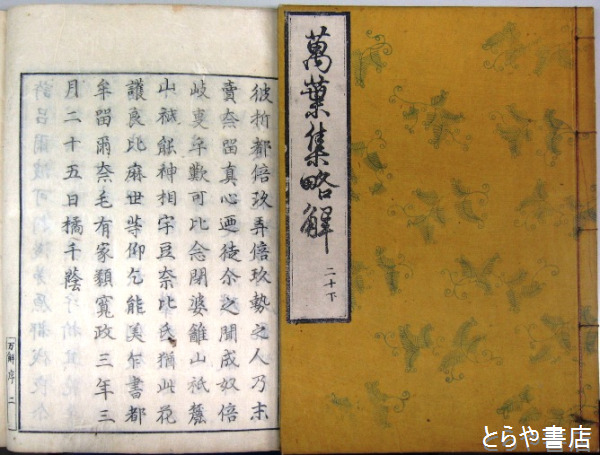 萬葉集略解
二十下
彼折都倍玖弄倍玖勢之人乃末
賣奈留真心迺徒尒之聞成奴倍
岐夏乎歎可比念閇婆雖山祇麓
山祇能神相宇豆奈比氐猶此花
護良比麻世等仰乞能美乍書都
牟留爾奈毛有家類寛政三年三
月二十五日橘千蔭
万解序 二
とらや書店